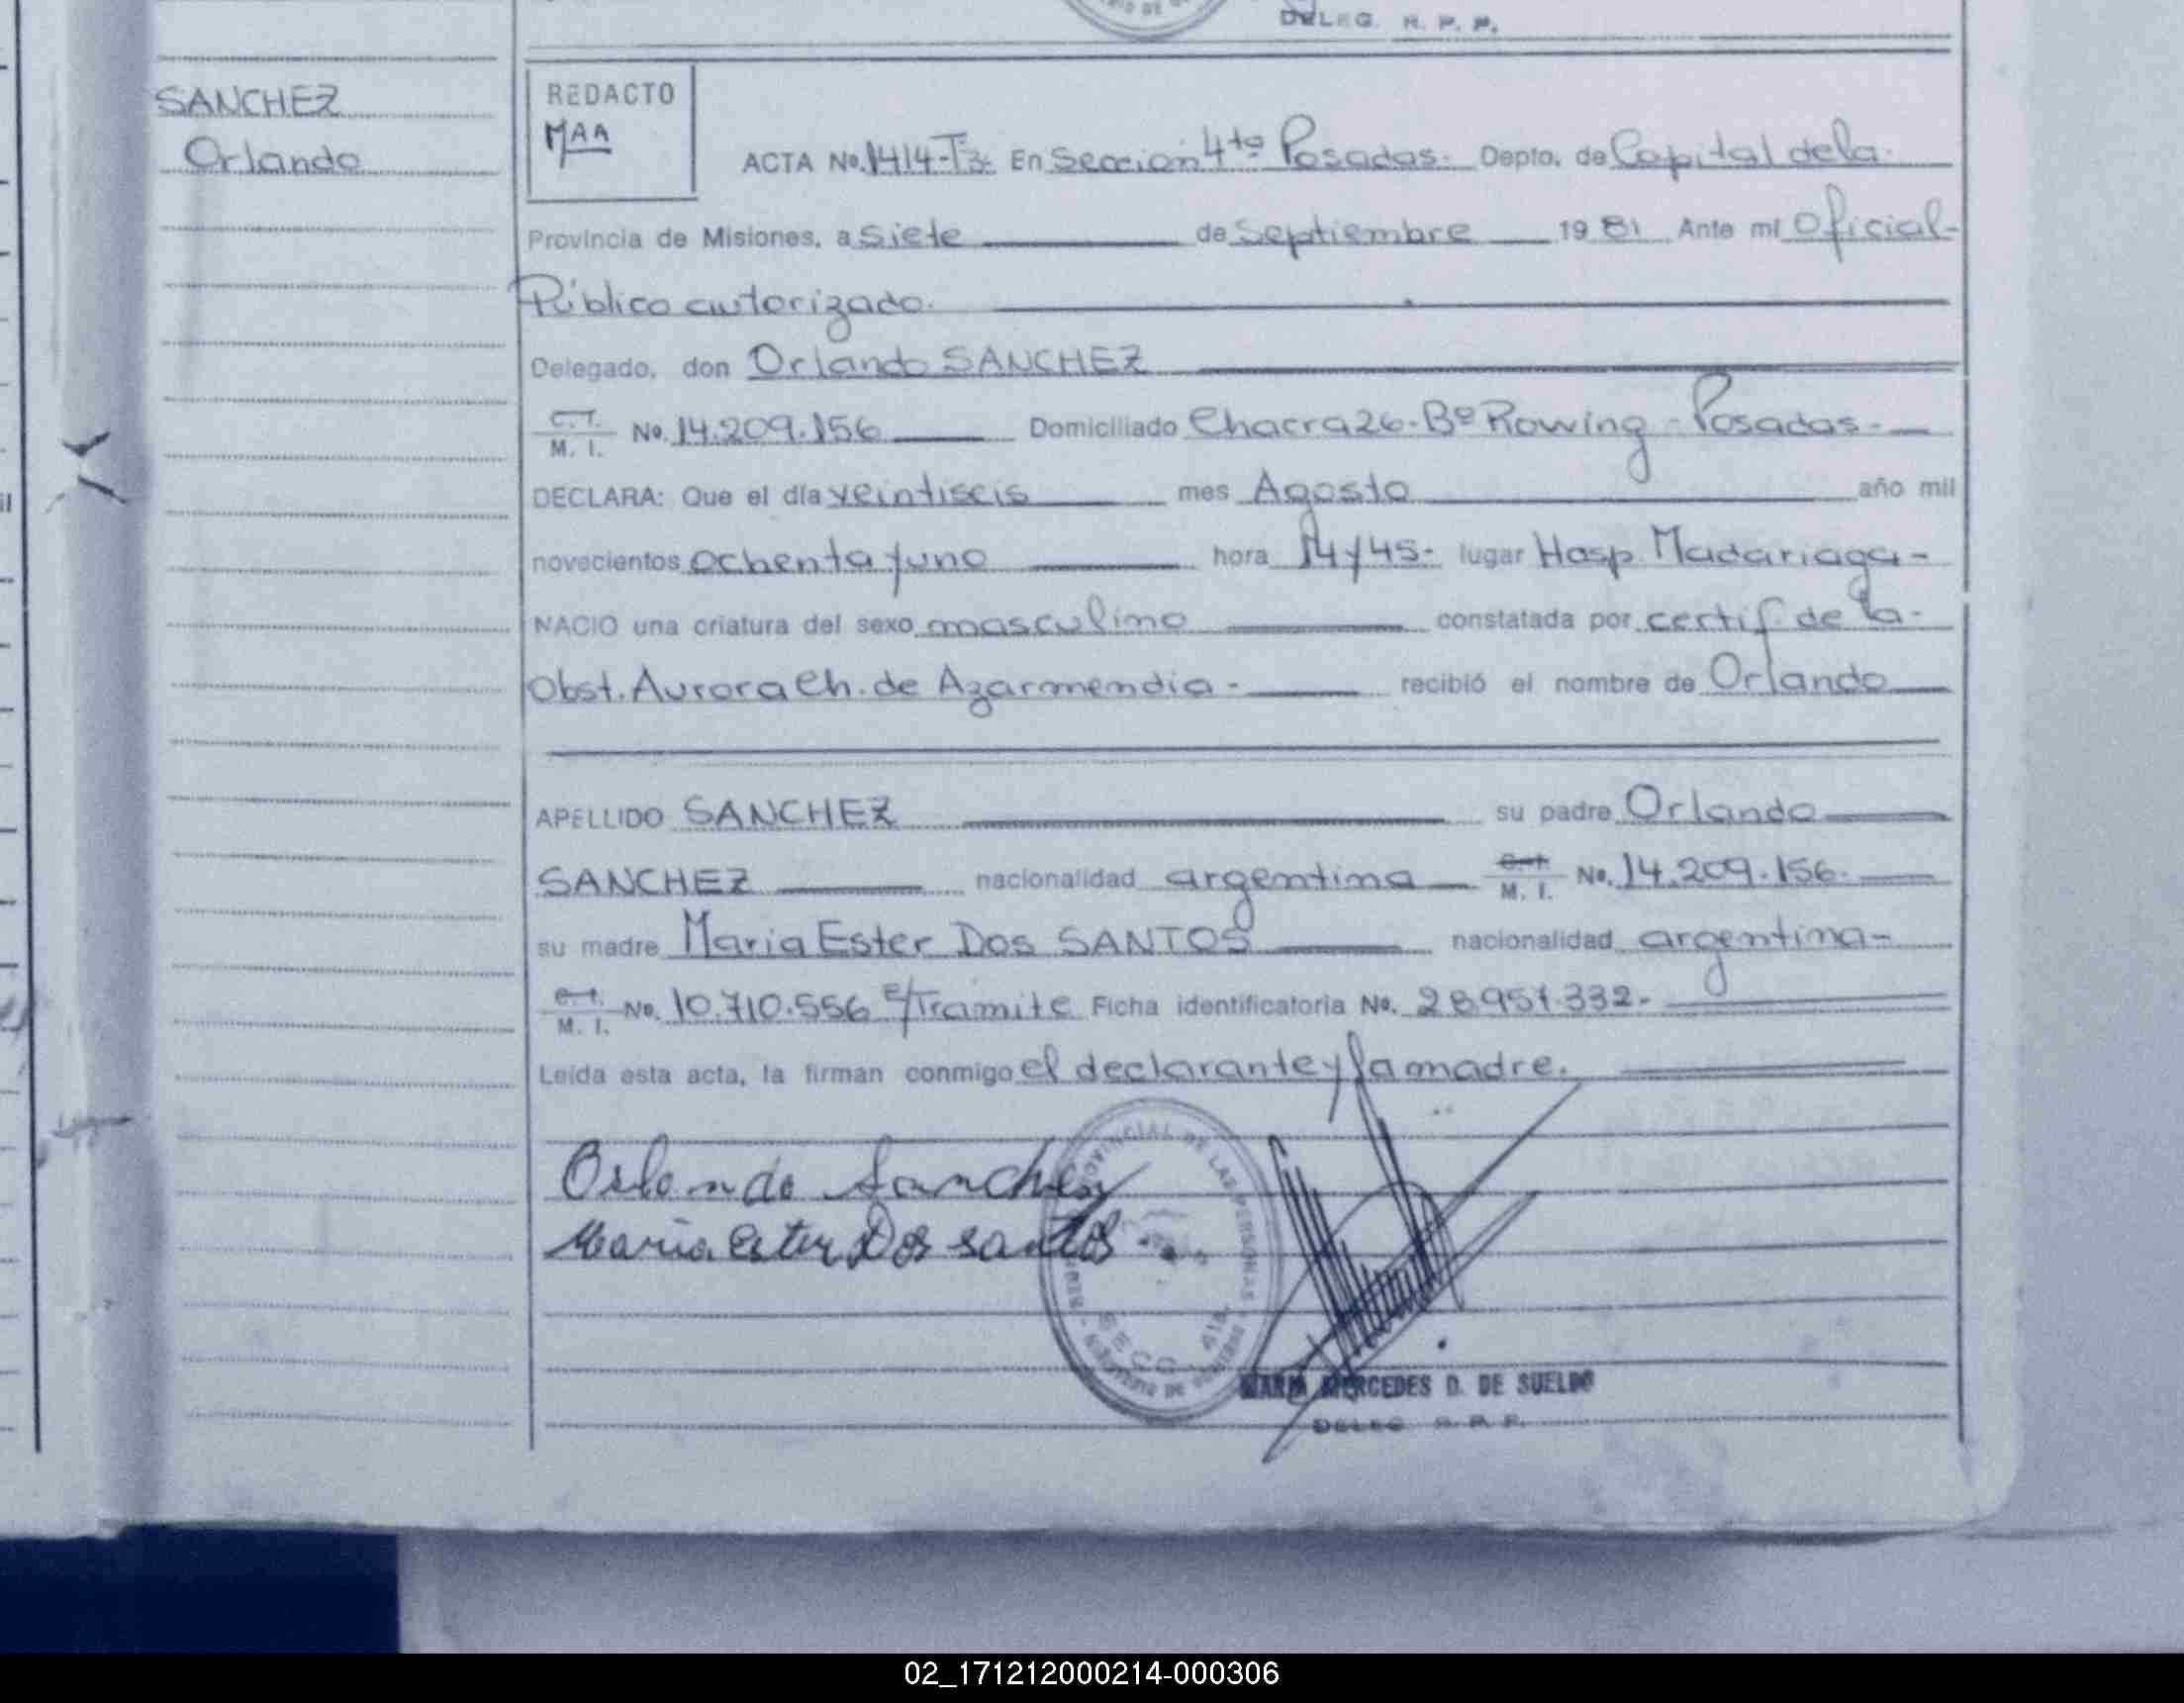 DELEG. R. P. P.
SANCHEZ
Orlando
REDACTO
MAA
ACTA No. 1414-T3- En Sección 4ta Posadas- Depto. de Capital de la
Provincia de Misiones, a siete de Septiembre 1981 Ante mi Oficial-
Público autorizado.
Delegado, don Orlando SANCHEZ
C.I. M. I. No. 14.209.156 Domiciliado Chacra 26-Bº Rowing-Posadas-
DECLARA: Que el día veintiseis mes Agosto año mil
novecientos ochenta y uno hora 14 y 45- lugar Hosp. Madariaga-
NACIO una criatura del sexo masculino constatada por certif. de la-
Obst. Aurora Ch. de Azarmendia- recibió el nombre de Orlando
APELLIDO SANCHEZ su padre Orlando
SANCHEZ nacionalidad argentina M. I. No. 14.209.156-
su madre Maria Ester Dos SANTOS nacionalidad argentina-
M. I. No. 10.710.556 E/Tramite Ficha identificatoria No. 28.951.332-
Leída esta acta, la firman conmigo el declarante y la madre.
Orlando Sanchez
Maria Ester Dos santos
PROVINCIAL DE LAS PERSONAS
SECC. 4ta.
MARIA MERCEDES D. DE SUELDO
DELEG R. P. P.
02_171212000214-000306